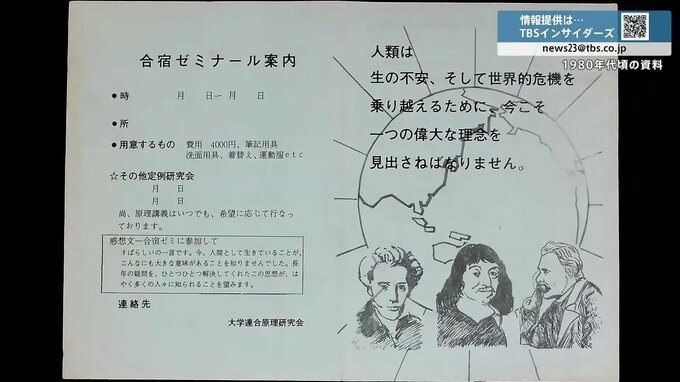 情報提供は…
TBSインサイダーズ
news23@tbs.co.jp
1980年代頃の資料
合宿ゼミナール案内
●時　月　日ー月　日
●所
●用意するもの　費用　4000円、筆記用具
洗面用具、着替え、運動服etc
☆その他定例研究会
月　日
月　日
尚、原理講義はいつでも、希望に応じて行なっ
ております。
感想文ー合宿ゼミに参加して
すばらしいの一言です。今、人間として生きていることが、
こんなにも大きな意味があることを知りませんでした。長
年の疑問を、ひとつひとつ解決してくれたこの思想が、は
やく多くの人々に知られることを望みます。
連絡先
大学連合原理研究会
人類は
生の不安、そして世界的危機を
乗り越えるために、今こそ
一つの偉大な理念を
見出さねばなりません。